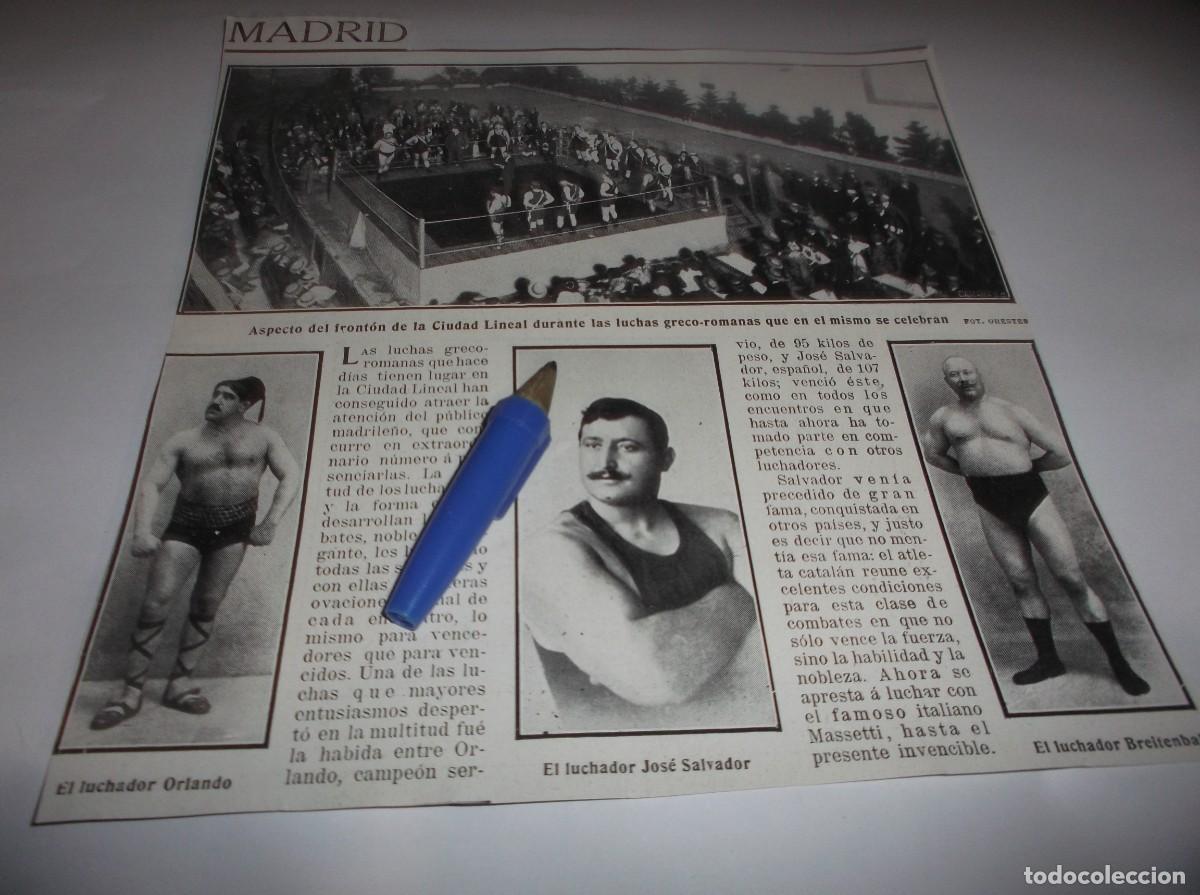 MADRID
Aspecto del frontón de la Ciudad Lineal durante las luchas greco-romanas que en el mismo se celebran FOT. ORESTES
LAS luchas greco-
romanas que hace
días tienen lugar en
la Ciudad Lineal han
conseguido atraer la
atención del público
madrileño, que con
curre en extraor
nario número á
senciarlas. La
tud de los lucha
y la forma
desarrollan
bates, noble
gante, les
todas las s y
con ellas eras
ovacione al de
cada en tro, lo
mismo para vence-
dores que para ven-
cidos. Una de las lu-
chas que mayores
entusiasmos desper-
tó en la multitud fué
la habida entre Or-
lando, campeón ser-
vio, de 95 kilos de
peso, y José Salva-
dor, español, de 107
kilos; venció éste,
como en todos los
encuentros en que
hasta ahora ha to-
mado parte en com-
petencia con otros
luchadores.
Salvador venía
precedido de gran
fama, conquistada en
otros países, y justo
es decir que no men-
tía esa fama: el atle-
ta catalán reune ex-
celentes condiciones
para esta clase de
combates en que no
sólo vence la fuerza,
sino la habilidad y la
nobleza. Ahora se
apresta á luchar con
el famoso italiano
Massetti, hasta el
presente invencible.
El luchador Orlando
El luchador José Salvador
El luchador Breitenba
todocoleccion